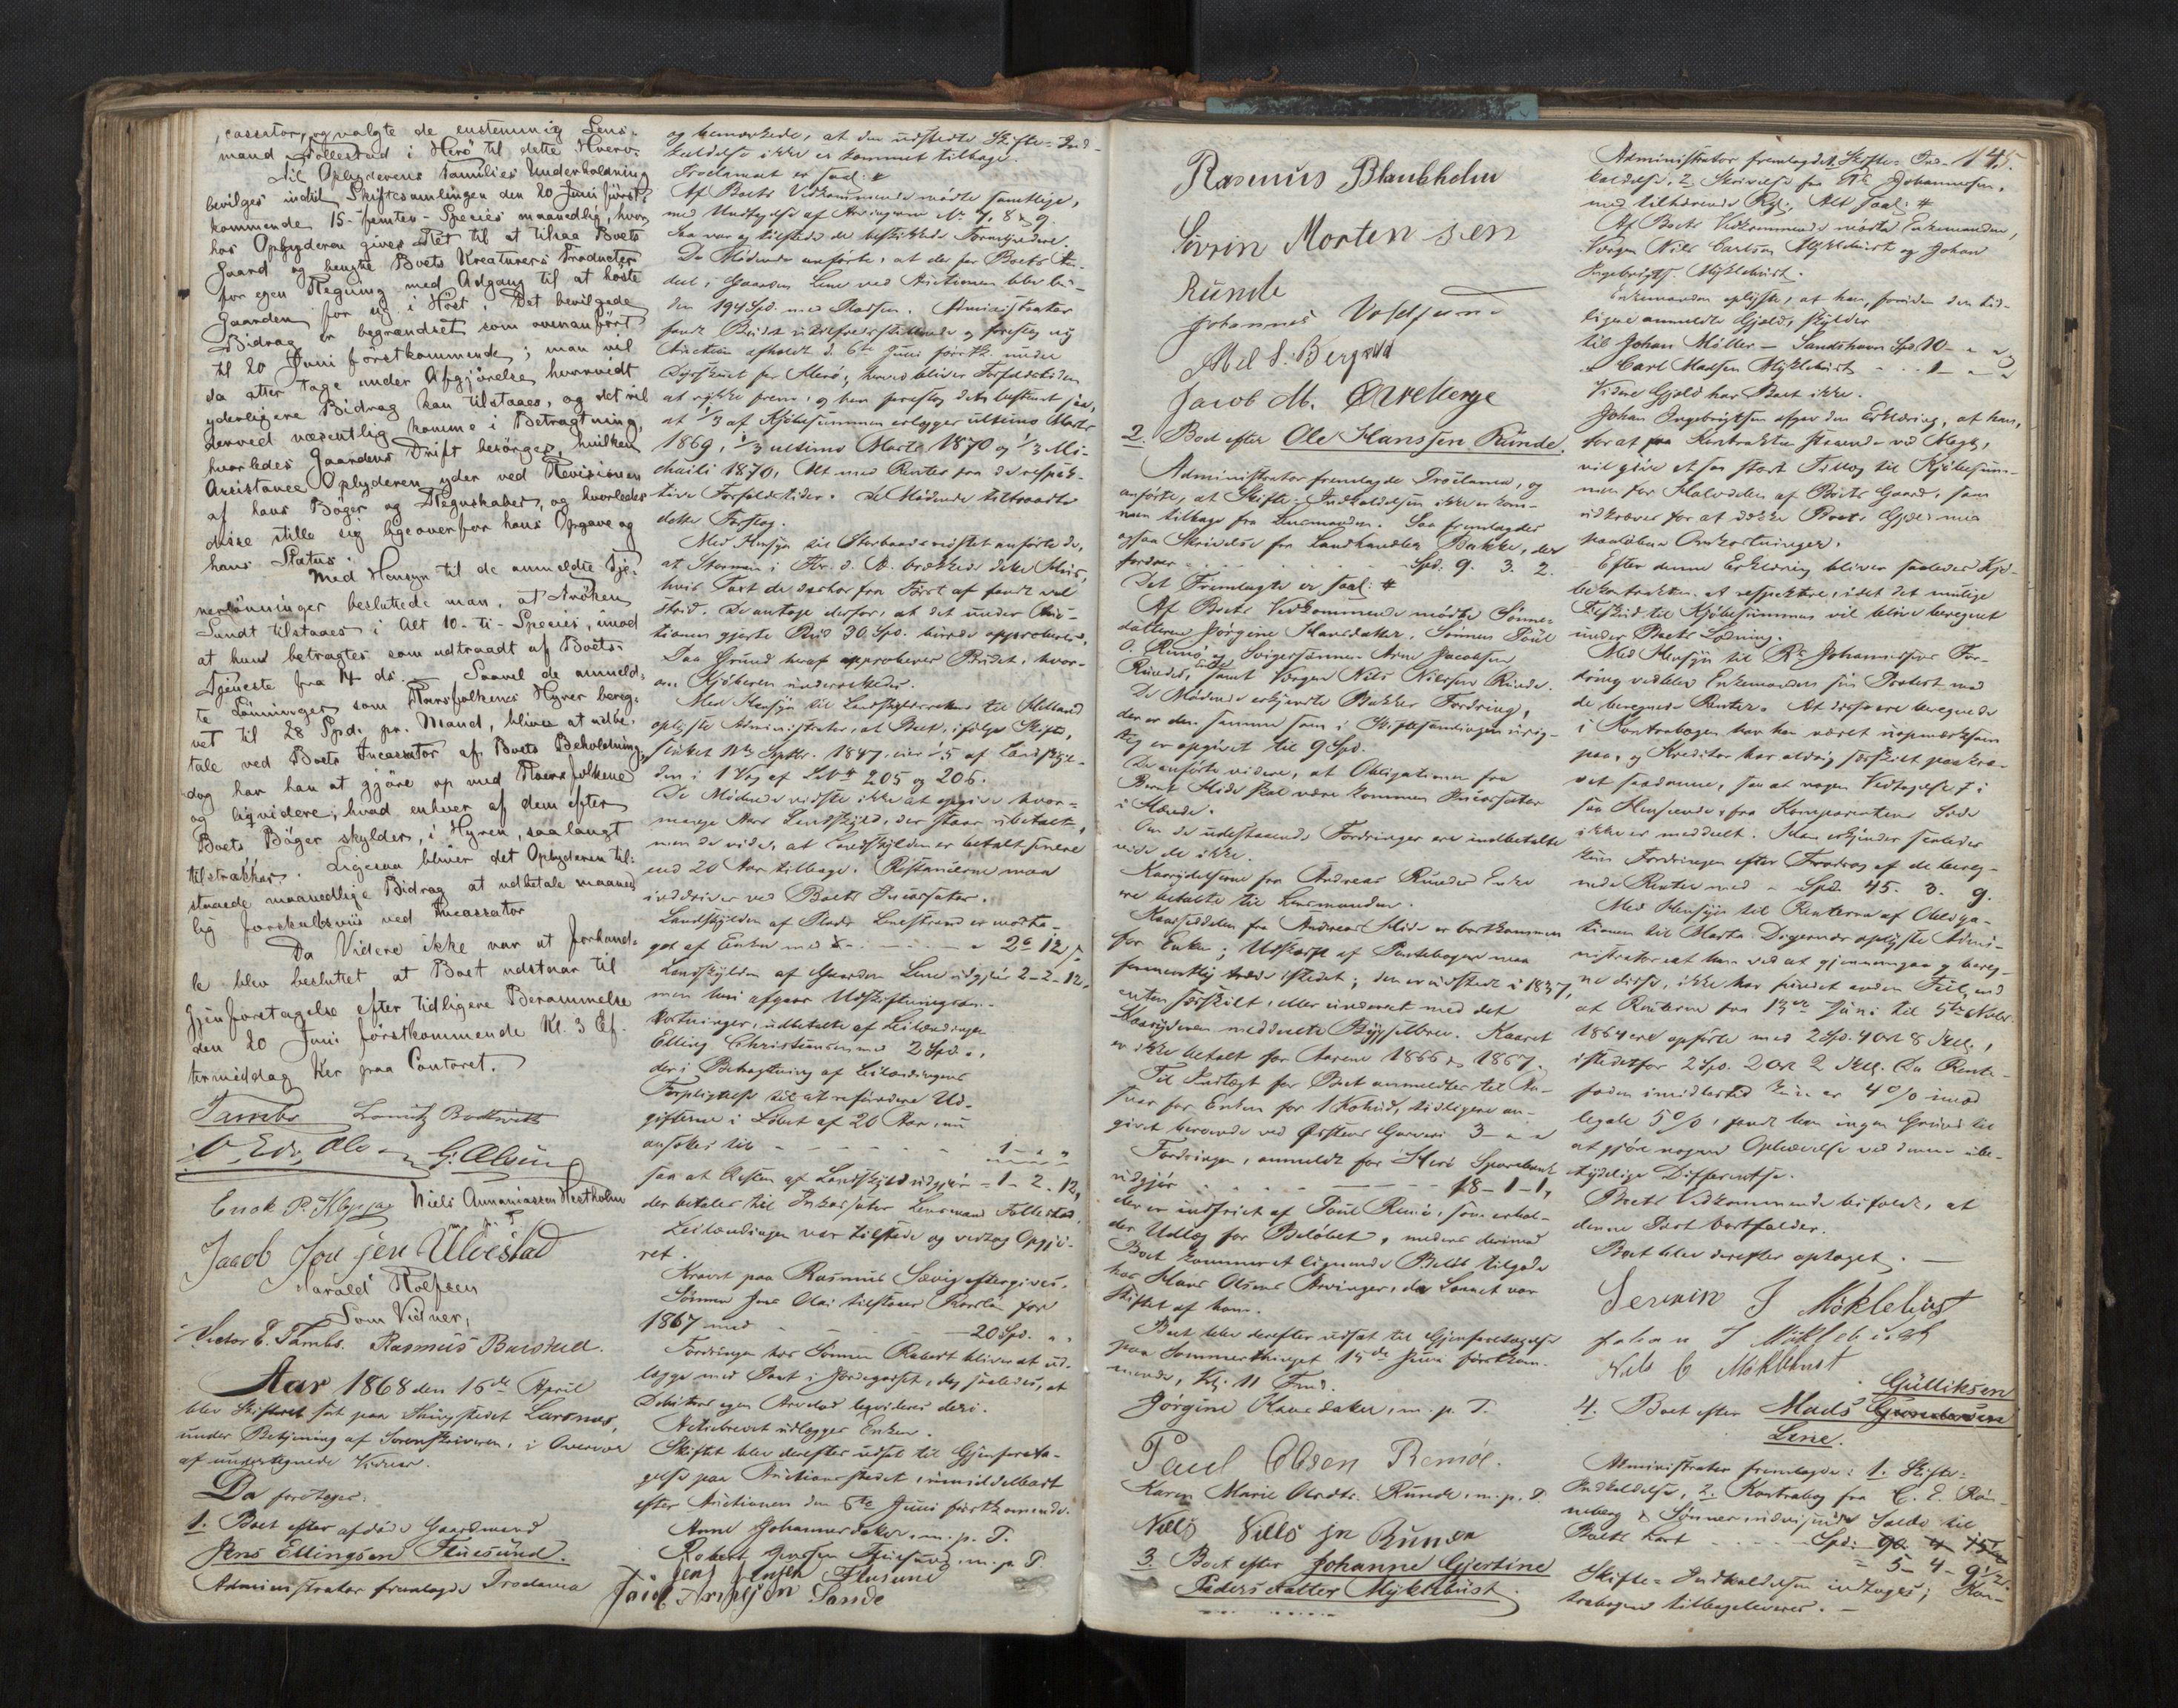 cassator, og valgte de enstemmig Lens-
mand Follestad i Herö til dette Hverv.
Til Opbyderens Families Underholdning
bevilges indtil Skiftesamlingen den 20 Juni först-
kommende 15-femten-Species maanedlig, hvor-
hos Opbyderen gives Ret til at tilsaa Boets
Gaard og benytte Boets Kreaturers Producter
for egen Regning med Adgang til at höste
Gaarden for sig i Höst. Det bevilgede
Bidrag er begrændset som ovenanfört
til 20 Juni förstkommende; man vil
da atter tage under Afgjörelse hvorvidt
yderligere Bidrag kan tilstaaes, og det vil
derved væsentlig komme i Betragtning,
hvorledes Gaardens Drift besörges, hvilken
Assistance Opbyderen yder ved Revisionen
af hans Böger og Regnskaber, og hvorledes
disse stille sig ligeoverfor hans Opgave og
hans Status.
Med Hensyn til de anmeldte Tje-
nerlönninger besluttede man, at Fröken
Sundt tilstaaes i Alt 10-ti-Species, imod
at hun betragtes som udtraadt af Boets
Tjeneste fra 14 ds. Saavel de anmeld-
te Lönninger som Roersfolkenes Hyrer bereg-
net til 28 Spd. pr. Mand, bliver at udbe-
tale ved Boets Incassator af Boets Beholdning,
dog har han at gjöre op med Roersfolkene
og liqvidere, hvad enhver af dem efter
Boets Böger skylder, i Hyren, saalangt
tilstrækker. Ligesaa bliver det Opbyderen til-
staaede maanedlige Bidrag at udbetale maaned-
lig forskudsviis ved Incassator
Da Videre ikke var at forhand-
le blev besluttet at Boet udstaar til
Gjenforetagelse efter tidligere Berammelse
den 20 Juni förstkommende Kl. 3 Ef-
termiddag her paa Contoret.
Tambs Lorentz Bottwitt
O. Edv. Ole G. Olsen
Enok P. Kleppe Niels Annaniassen Hestholm
m. p. P.
Jacob Jensen Ulvestad
Harald Rolfsen
Som Vidner,
Victor E. Thambs. Rasmus Buistad.
Aar 1868 den 16de April
blev Skifteret sat paa Thingstedet Larsnæs
under Betjening af Sorenskriveren, i Overvær
af undertegnede Vidner.
Da foretoges:
1. Boet efter afdöde Gaardmand
Jens Ellingsen Fluesund.
Administrator fremlagde Proclama
og bemærkede, at den udstedte Skifte-Ind-
kaldelse ikke er kommet tilbage.
Proclamaet er saal: #
Af Boets Vedkommende mödte samtlige,
med Undtagelse af Arvingerne No 7, 8 & 9.
Saa var og tilstede de beskikkede Formyndere.
De Mödende anförte, at der for Boets An-
deel i Gaarden Lene ved Auctionen blev bu-
den 194 Spd. med Rodsen. Administrator
fandt Budet utilfredsstillende og foreslog ny
Auction afholdt d. 6te Juni förstk. under
at rykke frem, og han foreslog dette bestemt saa,
at 1/3 af Kjöbesummen erlægges ultimo Marts
1869, 1/3 ultimo Marts 1870 og 1/3 Mi-
chaili 1870, Alt med Renter fra de respek-
tive Forfaldstider. De Mödende tiltraadte
dette Forslag.
Med Hensyn til Storbaadsnöstet anförte de,
at Stormen i Fbr. d. A. brækkede dette Huus,
hvis Taxt de derhos fra Först af fandt vel
stiv. De antage derfor, at det under Auc-
tionen gjorte Bud 30 Spd. burde approberes.
Paa Grund heraf approberes Budet, hvor-
om Kjöberen underrettedes.
Med Hensyn til Landskyldsrestance til Kolland
oplyste Administrator, at Boet, ifölge Skifte,
sluttet 11te Septbr. 1847, eier 1/5 af Landskyl-
den i 1 Vog af LNo 205 og 206.
De Mödende vidste ikke at opgive hvor-
mange Aars Landskyld, der staar ubetalt,
men de vide, at Landskylden er betalt senere
end 20 Aar tilbage. Restancerne maa
inddrives ved Boets Incassator.
Landskylden af Pladsen Lenestrand er modta-
get af Enken med 2 12,
Landskylden af Gaarden Lene udgjör 2-2-12,
men heri afgaar Udskiftningsom-
kostninger, udbetalte af Leilændingen
Elling Christiansen med 2 Spd.,
der i Betragtning af Leilændingens
Forpligtelse til at refundere Ud-
gifterne i Löbet af 20 Aar, nu
ansættes til 1 - " "
saa at Resten af Landskyld udgjör - 1 - 2 - 12,
der betales til Inkassator Lensmand Follestad.
Leilændingen var tilstede og vedtog Opgjö-
ret.
Kravet paa Rasmus Sævig eftergives.
Sönnen Jens Olai tilstaaes Aarslön for
1867 med 20 Spd. " "
Fordringen hos Sönnen Robert bliver at ud-
lægge med Part i Jordegodset, dog saaledes, at
Debitors egen Arvelod liqvideres deri.
Actiebrevet udlægges Enken.
Skiftet blev derefter udsat til Gjenforeta-
gelse paa Auctionsstedet, umiddelbart
efter Auctionen den 6te Juni förstkommende.
Anne Johannesdatter, m. p. P.
Robert Jensen Fluesund, m. p. P.
Jens Jensen Flusund
Sande
Rasmus Blankholm
Sivrin Mortensen
Runde
Johannes Voldsund
Abel S. Bergsvik
Jacob M.
2. Boet efter Ole Hanssen Runde.
Administrator fremlagde Proclama, og
anförte, at Skifte-Indkaldelsen ikke er kom-
men tilbage fra Lensmanden. Saa fremlagdes
ogsaa Skrivelse fra Landhandler Bakke, der
fordrer Spd. 9. 3. 2.
Det Fremlagte er saal: #
Af Boets Vedkommende mödte Sönne-
datteren Jörgine Hansdatter, Sönnen Poul
O. Remö, Svigersönnen Arne Jacobsen
Runde, samt Værgen Nils Nilssen Runde.
De Mödende erkjendte Bakkes Fordring,
der er den samme som i Skiftesamlingen urig-
tig er opgivet til 9 Spd.
De anförte videre, at Obligationen fra
Bernt Hide skal være kommen Incassator
i Hænde.
Om de udestaaende Fordringer ere indbetalte
vide de ikke.
Kaarydelserne fra Andreas Rundes Enke
ere betalte til Lensmanden.
Kaarseddelen fra Andreas Hide er bortkommen
for Enken; Udskrift af Pantebogen maa
formentlig træde istedet; den er udstedt i 1837,
enten særskilt, eller indtaget med det
Kaaryderen meddeelte Bygselbrev. Kaaret
er ikke betalt for Aarene 1866 & 1867.
Til Indtægt for Boet anmeldtes til An-
svar for Enken for 1 Kohud, tidligere an-
givet beroende ved Örstens Garveri 3 - " "
Fordringen, anmeldt for Herö Sparebank
udgjör 18-1-1,
der er indfriet af Poul Remö, som erhol-
der Udlæg for Belöbet, medens derimod
Boet kommer et lignende Belöb tilgode
hos Hans Olsens Arvinger, da Laanet var
stiftet af ham.
Boet blev derefter udsat til Gjenforetagelse
paa Sommerthinget 15de Juni förstkom-
mende, Kl. 11 Fmd.
Jörgine Hansdatter, m. p. P.
Paul Olsen Remöe.
Karen Marie Olsdtr. Runde, m. p. P.
Nells Nells sn Runde
3. Boet efter Johanne Gjertine
Pedersdatter Myklebust.
145.
Administrator fremlagde 1. Skifte-Ind-
kaldelse, 2. Skrivelse fra Johannesen,
med tilhörende Rgl., Alt saal: #
Af Boets Vedkommende mödte Enkemanden,
Værgen Nils Carlsen Myklebust og Johan
Ingebrigts. Myklebust.
Enkemanden oplyste, at han, foruden den tid-
ligere anmeldte Gjeld, skylder
til Johan Möller - Sandshavn Spd. 10 - " "
" Carl Madsen Myklebust 1 - " "
Videre Gjeld har Boet ikke.
Johan Ingebrigtsen afgav den Erklæring, at han,
for at faa Kontrakten staaende ved Magt,
vil give et saa stort Tillæg til Kjöbesum-
men for Halvdelen af Boets Gaard, som
udkræves for at dække Boets Gjeld med
paalöbne Omkostninger.
Efter denne Erklæring bliver saaledes Kjö-
bekontrakten at respektere, idet det mulige
Tilskud til Kjöbesummen vil blive beregnet
under Boets Lodning.
Med Hensyn til Johannesens For-
dring vedblev Enkemanden sin Protest mod
de beregnede Renter. At disse ere beregnede
i Kontrabogen har han været uopmærksom
paa, og Kreditor har aldrig særskilt paakræ-
vet saadanne, saa at nogen Vedtagelse i
saa Henseende, fra Komparentens Side
ikke er meddeelt. Man erkjender saaledes
kun Fordringen efter Fradrag af de bereg-
nede Renter med Spd. 45. 3. 9.
Med Hensyn til Renterne af Obliga-
tionen til Marta Digernæs oplyste Admi-
nistrator, at han ved at gjennemgaa og bereg-
ne disse, ikke har fundet anden Feil, end
at Renterne fra 13de Juni til 5te Novbr.
1864 ere opförte med 2 Spd. 4 Ort 8 Skill.,
istedetfor 2 Spd. 2 Ort 2 Skill. Da Rente-
foden imidlertid kun er 4% imod
legale 5%, fandt han ingen Grund til
at gjöre nogen Ophævelse ved denne ube-
tydelige Differentse.
Boets Vedkommende bifaldt, at
denne Post bortfalder.
Boet blev derefter optaget. —
Serenin J Möklebust
Johan J Mökleb ust
Nils C Möklebust
4. Boet efter Mads Gundersen Gulliksen
Lene.
Administrator fremlagde: 1. Skifte-
Indkaldelse, 2. Kontrabog fra C. E. Rön-
neberg & Sönner, udvisende Saldo til
Boets Last Spd. 90 4 15
- 5 - 4 - 9 1/2.
Skifte-Indkaldelsen indtages; Kon-
trabogen tilbageleveres. —